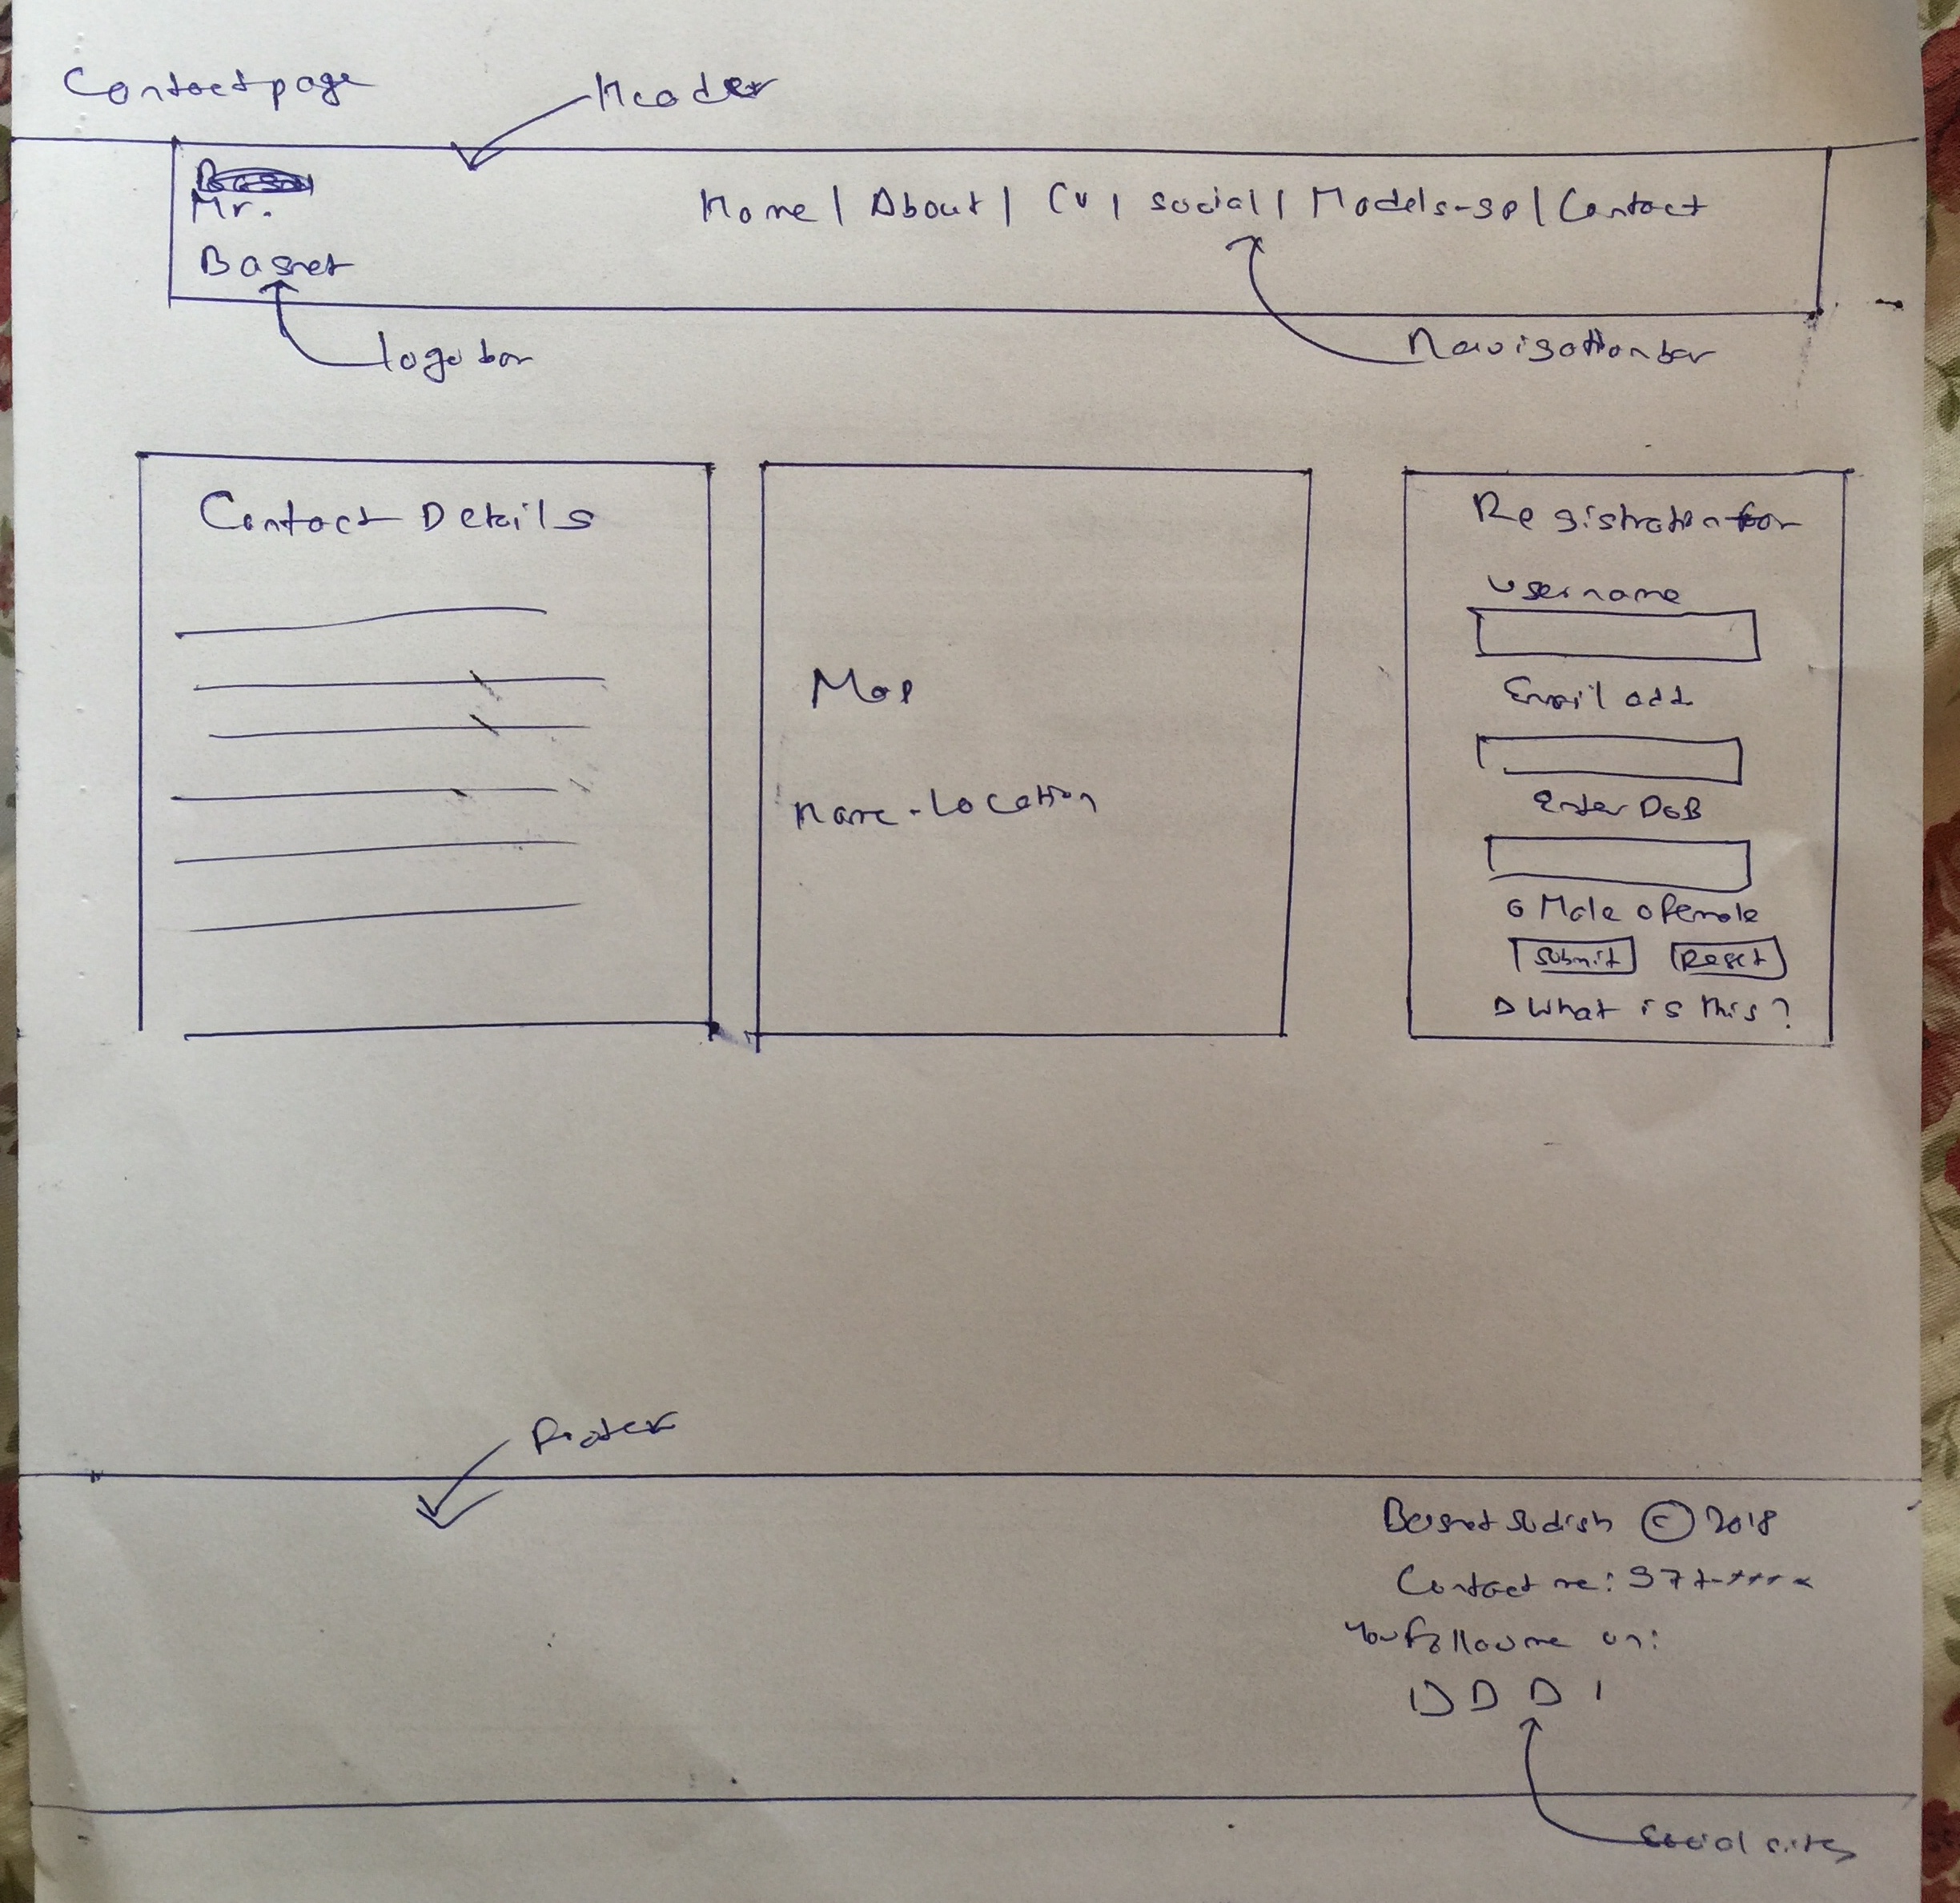 Contact page
Header
Mr.
Basnet
Home | About | CV | social | Models-sp | Contact
logo bar
Navigation bar
Contact Details
Map
Name-Location
Registration for
username
Email add
Enter DoB
Male Female
Submit Reset
What is this?
Footer
Basnet Sudish © 2018
Contact me:
You Follow me on:
Social sites